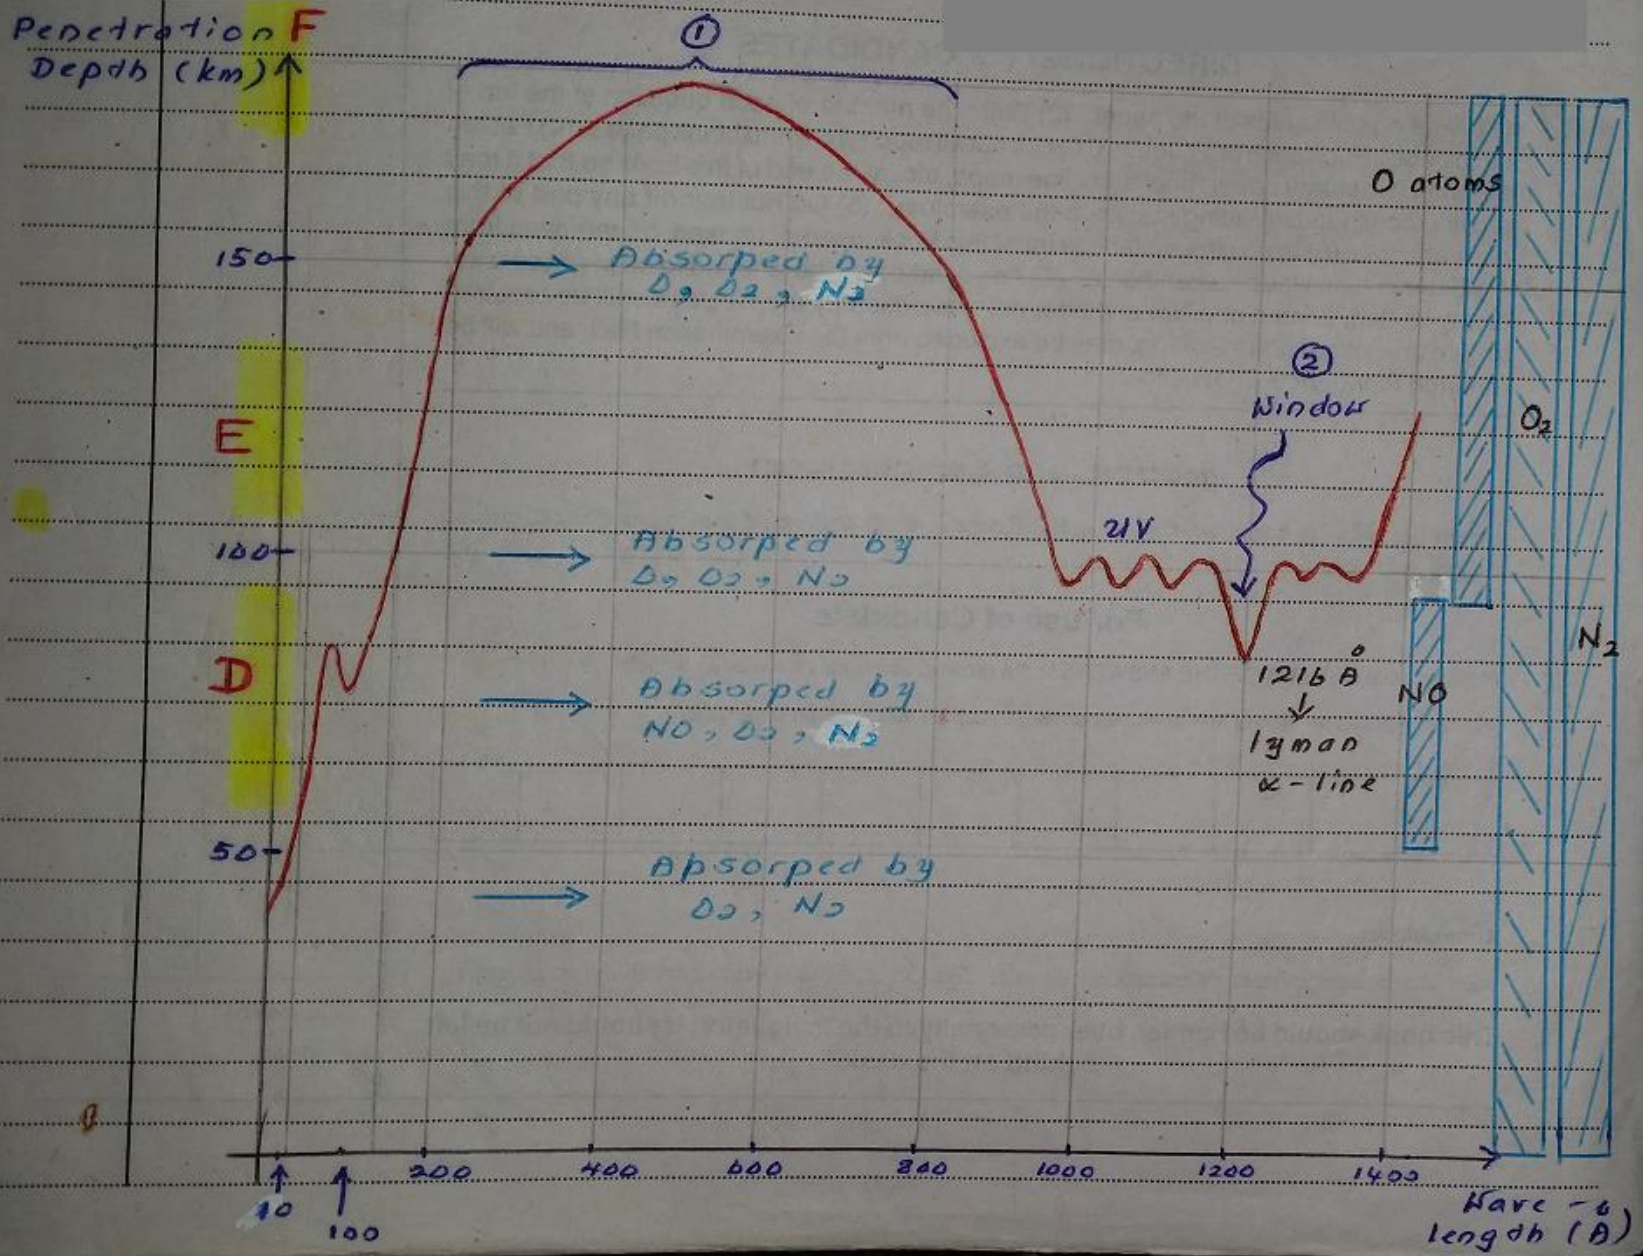 Penetration F
Depth (km)
①
O atoms
150
Absorped by
O, O2, N2
②
Window
E
O2
UV
100
Absorped by
O, O2, N2
N2
D
1216 Å
NO
Absorped by
NO, O2, N2
lyman
α-line
50
Absorped by
O2, N2
200 400 600 800 1000 1200 1400
10
100
Wave-
length (Å)